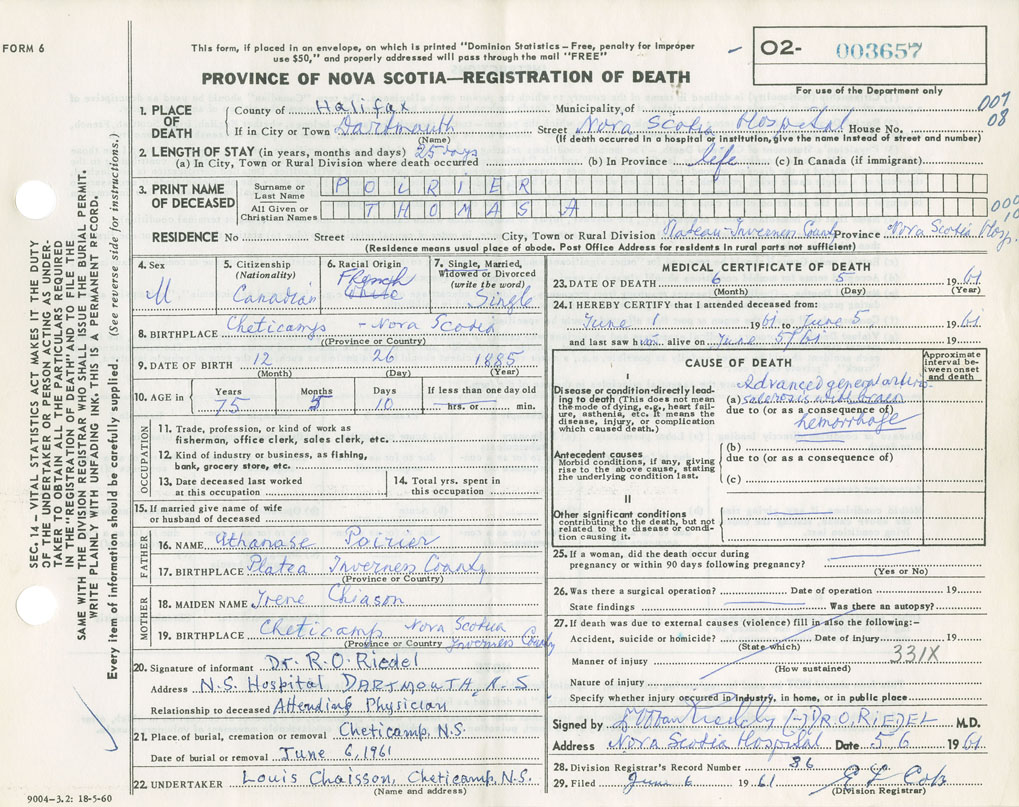 FORM 6
This form, if placed in an envelope, on which is printed "Dominion Statistics – Free, penalty for improper
use $50," and properly addressed will pass through the mail "FREE"
PROVINCE OF NOVA SCOTIA—REGISTRATION OF DEATH
O2- 003657
For use of the Department only
007
08
1. PLACE OF DEATH County of Halifax Municipality of
If in City or Town Dartmouth Street Nova Scotia Hospital House No.
(Name) (If death occurred in a hospital or institution, give the name instead of street and number)
2. LENGTH OF STAY (in years, months and days) 25 days
(a) In City, Town or Rural Division where death occurred (b) In Province life (c) In Canada (if immigrant)
3. PRINT NAME OF DECEASED
Surname or Last Name POIRIER
All Given or Christian Names THOMAS A
RESIDENCE No Street City, Town or Rural Division Plateau-Inverness County Province Nova Scotia
(Residence means usual place of abode. Post Office Address for residents in rural parts not sufficient)
4. Sex M
5. Citizenship (Nationality) Canadian
6. Racial Origin French white
7. Single, Married, Widowed or Divorced (write the word) Single
8. BIRTHPLACE Cheticamps - Nova Scotia
(Province or Country)
9. DATE OF BIRTH 12 26 1885
(Month) (Day) (Year)
10. AGE in Years 75 Months 5 Days 10 If less than one day old hrs. or min.
OCCUPATION
11. Trade, profession, or kind of work as
fisherman, office clerk, sales clerk, etc.
12. Kind of industry or business, as fishing,
bank, grocery store, etc.
13. Date deceased last worked
at this occupation
14. Total yrs. spent in
this occupation
15. If married give name of wife
or husband of deceased
FATHER
16. NAME Athanase Poirier
17. BIRTHPLACE Platea Inverness County
(Province or Country)
MOTHER
18. MAIDEN NAME Irene Chiason
19. BIRTHPLACE Cheticamp Nova Scotia
(Province or Country) Inverness County
20. Signature of informant Dr. R.O. Riedel
Address N.S. Hospital DARTMOUTH, N.S
Relationship to deceased Attending Physician
21. Place of burial, cremation or removal Cheticamp, N.S.
Date of burial or removal June 6, 1961
22. UNDERTAKER Louis Chaisson, Cheticamp, N.S.
(Name and address)
9004–3.2: 18-5-60
MEDICAL CERTIFICATE OF DEATH
23. DATE OF DEATH 6 5 1961
(Month) (Day) (Year)
24. I HEREBY CERTIFY that I attended deceased from:
June 1 1961 to June 5 1961
and last saw him alive on June 5/61
CAUSE OF DEATH
Approximate interval between onset and death
I
Disease or condition directly leading to death (This does not mean the mode of dying, e.g., heart failure, asthenia, etc. It means the disease, injury, or complication which caused death.)
Advanced general arterio-
(a) sclerosis with brain
due to (or as a consequence of)
hemorrhage
Antecedent causes
Morbid conditions, if any, giving rise to the above cause, stating the underlying condition last.
(b)
due to (or as a consequence of)
(c)
II
Other significant conditions
contributing to the death, but not related to the disease or condition causing it.
25. If a woman, did the death occur during
pregnancy or within 90 days following pregnancy?
(Yes or No)
26. Was there a surgical operation? Date of operation 19
State findings Was there an autopsy?
27. If death was due to external causes (violence) fill in also the following:–
Accident, suicide or homicide? Date of injury 19
(State which)
Manner of injury 331X
(How sustained)
Nature of injury
Specify whether injury occurred in industry, in home, or in public place
Signed by (-) DR O. RIEDEL M.D.
Address Nova Scotia Hospital Date 5 6 1961
28. Division Registrar's Record Number 86
29. Filed June 6 1961
(Division Registrar)
SEC. 14 – VITAL STATISTICS ACT MAKES IT THE DUTY
OF THE UNDERTAKER OR PERSON ACTING AS UNDERTAKER
TO OBTAIN ALL THE PARTICULARS REQUIRED
IN THE "REGISTRATION OF DEATH" AND TO FILE THE
SAME WITH THE DIVISION REGISTRAR WHO SHALL ISSUE THE BURIAL PERMIT.
WRITE PLAINLY WITH UNFADING INK. THIS IS A PERMANENT RECORD.
Every item of information should be carefully supplied. (See reverse side for instructions.)